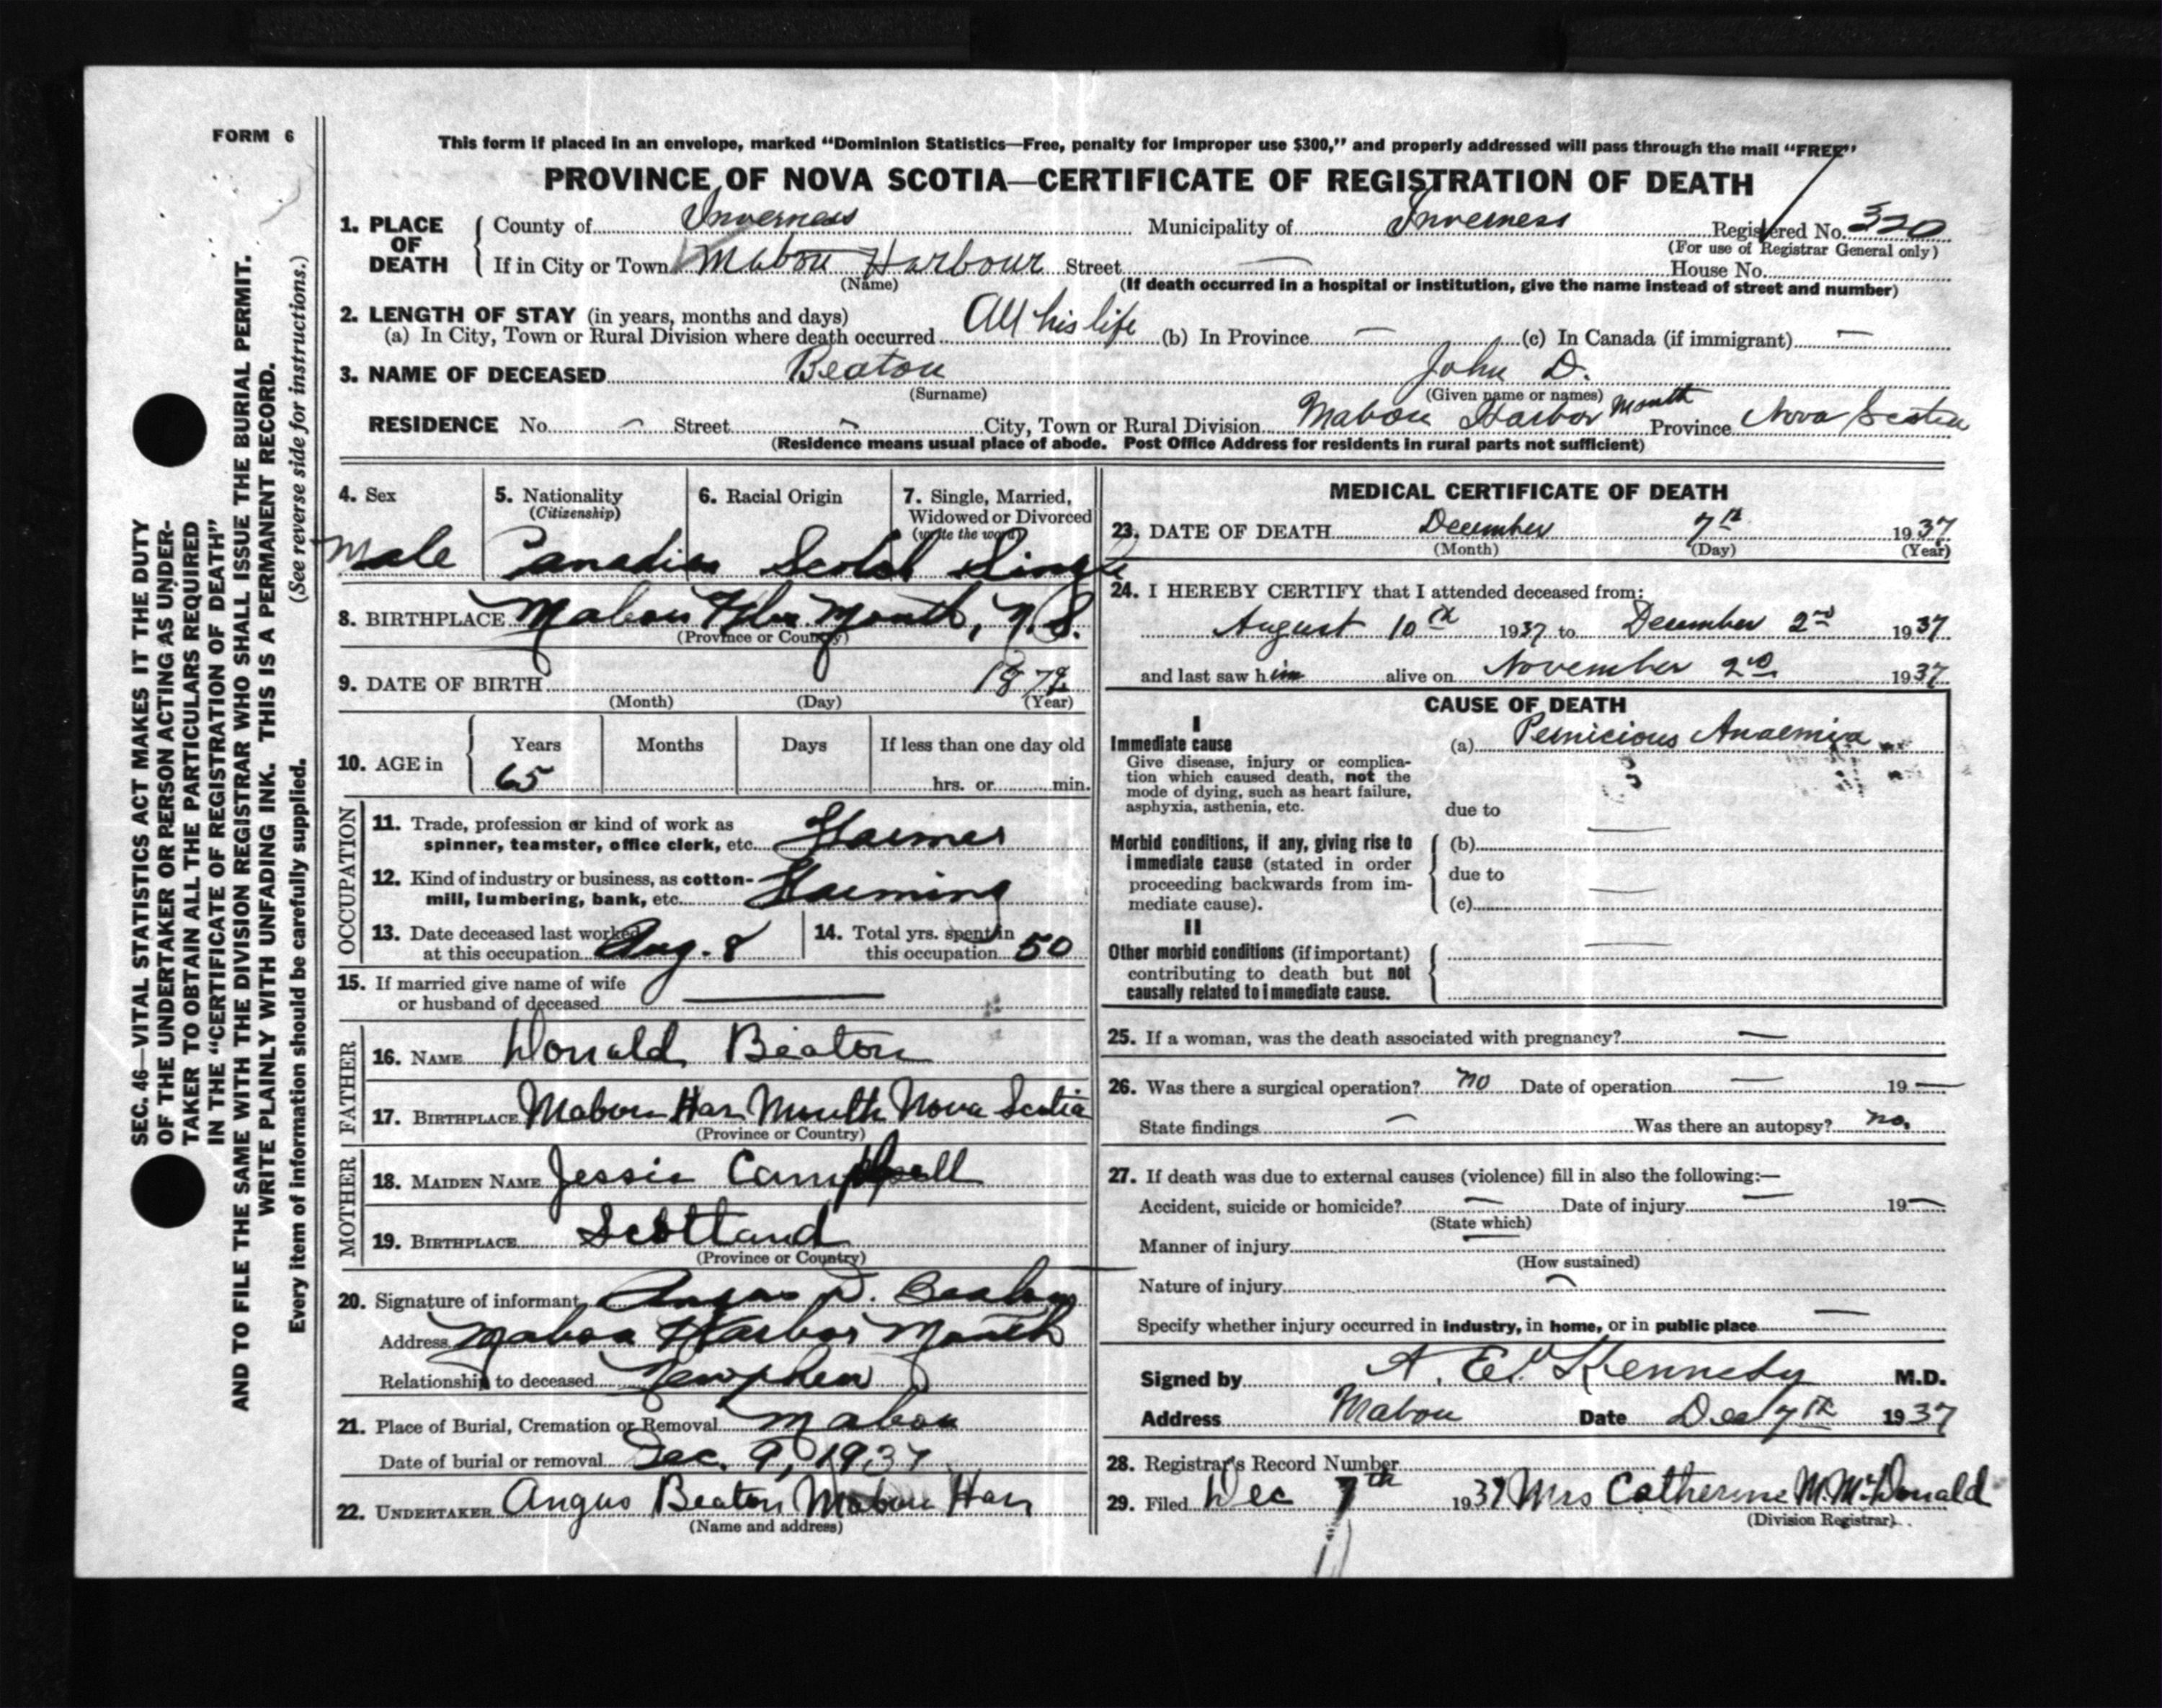 FORM 6
This form if placed in an envelope, marked "Dominion Statistics—Free, penalty for improper use $300," and properly addressed will pass through the mail "FREE"
PROVINCE OF NOVA SCOTIA—CERTIFICATE OF REGISTRATION OF DEATH
1. PLACE OF DEATH
County of Inverness Municipality of Inverness Registered No. 320
(For use of Registrar General only)
If in City or Town Mabou Harbour Street — House No.
(Name) (If death occurred in a hospital or institution, give the name instead of street and number)
2. LENGTH OF STAY (in years, months and days)
(a) In City, Town or Rural Division where death occurred All his life (b) In Province — (c) In Canada (if immigrant) —
3. NAME OF DECEASED Beaton John D.
(Surname) (Given name or names)
RESIDENCE No. — Street — City, Town or Rural Division Mabou Harbor Mouth Province Nova Scotia
(Residence means usual place of abode. Post Office Address for residents in rural parts not sufficient)
4. Sex
Male
5. Nationality
(Citizenship)
Canadian
6. Racial Origin
Scotch
7. Single, Married,
Widowed or Divorced
(write the word)
Single
8. BIRTHPLACE Mabou Hbr. Mouth, N.S.
(Province or County)
9. DATE OF BIRTH
(Month) (Day) (Year)
10. AGE in Years Months Days If less than one day old
65 hrs. or min.
OCCUPATION
11. Trade, profession or kind of work as
spinner, teamster, office clerk, etc. Farmer
12. Kind of industry or business, as cotton-
mill, lumbering, bank, etc. Farming
13. Date deceased last worked
at this occupation Aug. 8
14. Total yrs. spent in
this occupation 50
15. If married give name of wife
or husband of deceased —
FATHER
16. NAME Donald Beaton
17. BIRTHPLACE Mabou Har Mouth Nova Scotia
(Province or Country)
MOTHER
18. MAIDEN NAME Jessie Campbell
19. BIRTHPLACE Scotland
(Province or Country)
20. Signature of informant Angus D. Beaton
Address Mabou Harbor Mouth
Relationship to deceased Newphew
21. Place of Burial, Cremation or Removal Mabou
Date of burial or removal Dec. 9, 1937
22. UNDERTAKER Angus Beaton Mabou Har
(Name and address)
MEDICAL CERTIFICATE OF DEATH
23. DATE OF DEATH December 7th 1937
(Month) (Day) (Year)
24. I HEREBY CERTIFY that I attended deceased from:
August 10th 1937 to December 2nd 1937
and last saw him alive on November 2nd 1937
CAUSE OF DEATH
I
Immediate cause
Give disease, injury or complica-
tion which caused death, not the
mode of dying, such as heart failure,
asphyxia, asthenia, etc.
(a) Pernicious Anaemia
due to —
Morbid conditions, if any, giving rise to
immediate cause (stated in order
proceeding backwards from im-
mediate cause).
(b)
due to —
(c)
II
Other morbid conditions (if important)
contributing to death but not
causally related to immediate cause.
—
25. If a woman, was the death associated with pregnancy? —
26. Was there a surgical operation? no Date of operation — 19 —
State findings — Was there an autopsy? no.
27. If death was due to external causes (violence) fill in also the following:—
Accident, suicide or homicide? — Date of injury — 19 —
(State which)
Manner of injury —
(How sustained)
Nature of injury —
Specify whether injury occurred in industry, in home, or in public place —
Signed by Kennedy M.D.
Address Mabou Date Dec 7th 1937
28. Registrar's Record Number
29. Filed Dec 7th 1937 Mrs Catherine M. McDonald
(Division Registrar)
SEC. 46—VITAL STATISTICS ACT MAKES IT THE DUTY
OF THE UNDERTAKER OR PERSON ACTING AS UNDER-
TAKER TO OBTAIN ALL THE PARTICULARS REQUIRED
IN THE "CERTIFICATE OF REGISTRATION OF DEATH"
AND TO FILE THE SAME WITH THE DIVISION REGISTRAR WHO SHALL ISSUE THE BURIAL PERMIT.
WRITE PLAINLY WITH UNFADING INK. THIS IS A PERMANENT RECORD.
Every item of information should be carefully supplied. (See reverse side for instructions.)